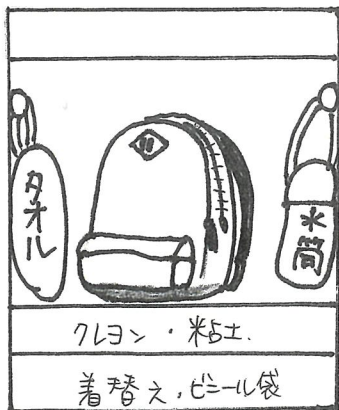 タオル
水筒
クレヨン・粘土.
着替え,ビニール袋